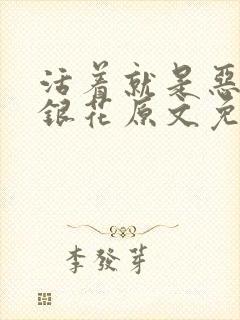 活着就是惡
銀花原文免
李發芽